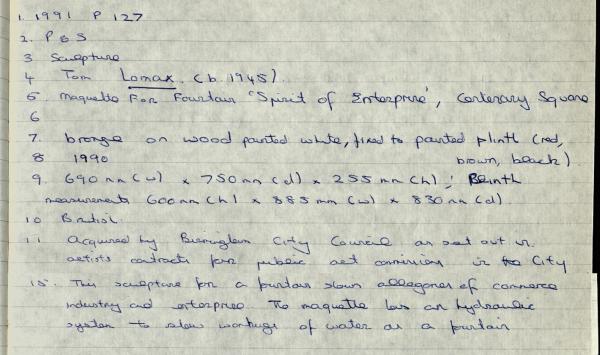 1. 1991 P 127
2. P & S
3 Sculpture
4 Tom Lomax (b. 1945).
5. Maquette For Fountain 'Spirit of Enterprise', Centenary Square
6
7. bronze on wood painted white, fixed to painted plinth (red,
brown, black).
8 1990
9. 690mm (w) x 750mm (d) x 255mm (h); Plinth
measurements 600mm (h) x 885mm (w) x 830mm (d).
10 British
11 Acquired by Birmingham City Council as set out in
artists contracts for public art commission in the City
15. This sculpture for a fountain shows allegories of commerce
industry and enterprise. The maquette has an hydraulic
system to show workings of water as a fountain